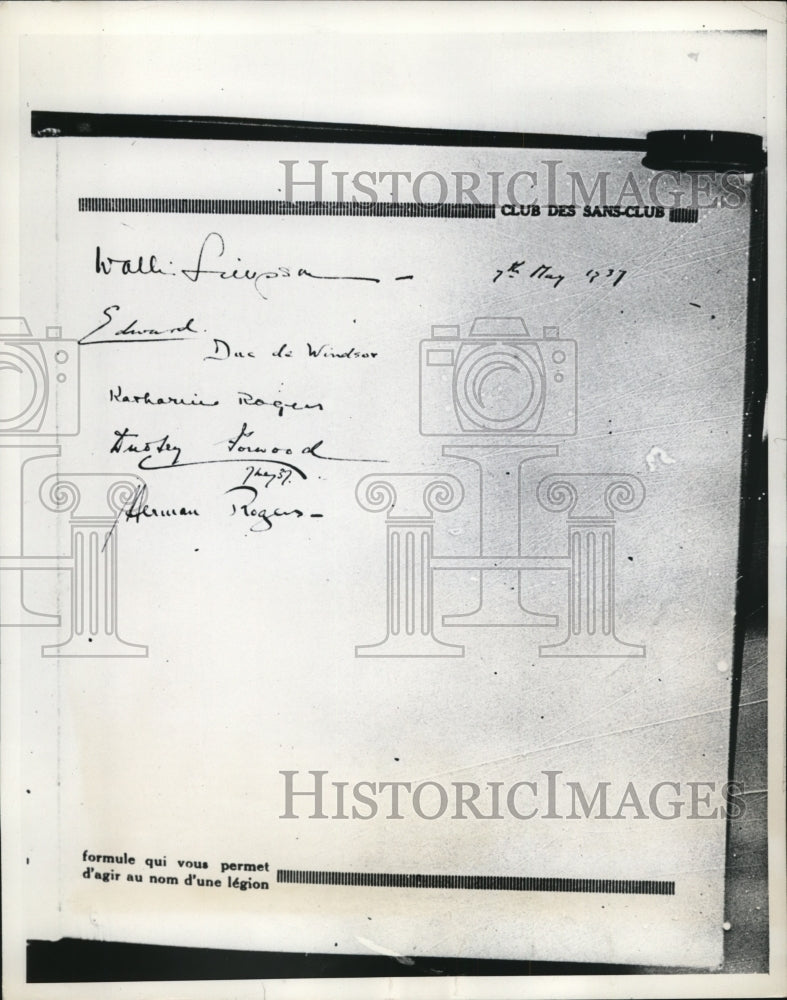 HISTORICIMAGES
CLUB DES SANS-CLUB
Wallis Simpson — 7th May 1937
Edward.
Duc de Windsor
Katharine Rogers
Dudley Forwood
7 May 37.
Herman Rogers –
HISTORICIMAGES
formule qui vous permet
d'agir au nom d'une légion